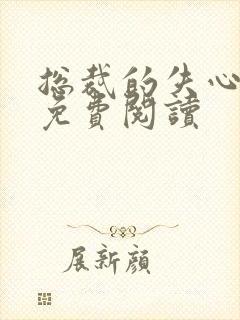 总裁的失心
免費閱讀
展新顔